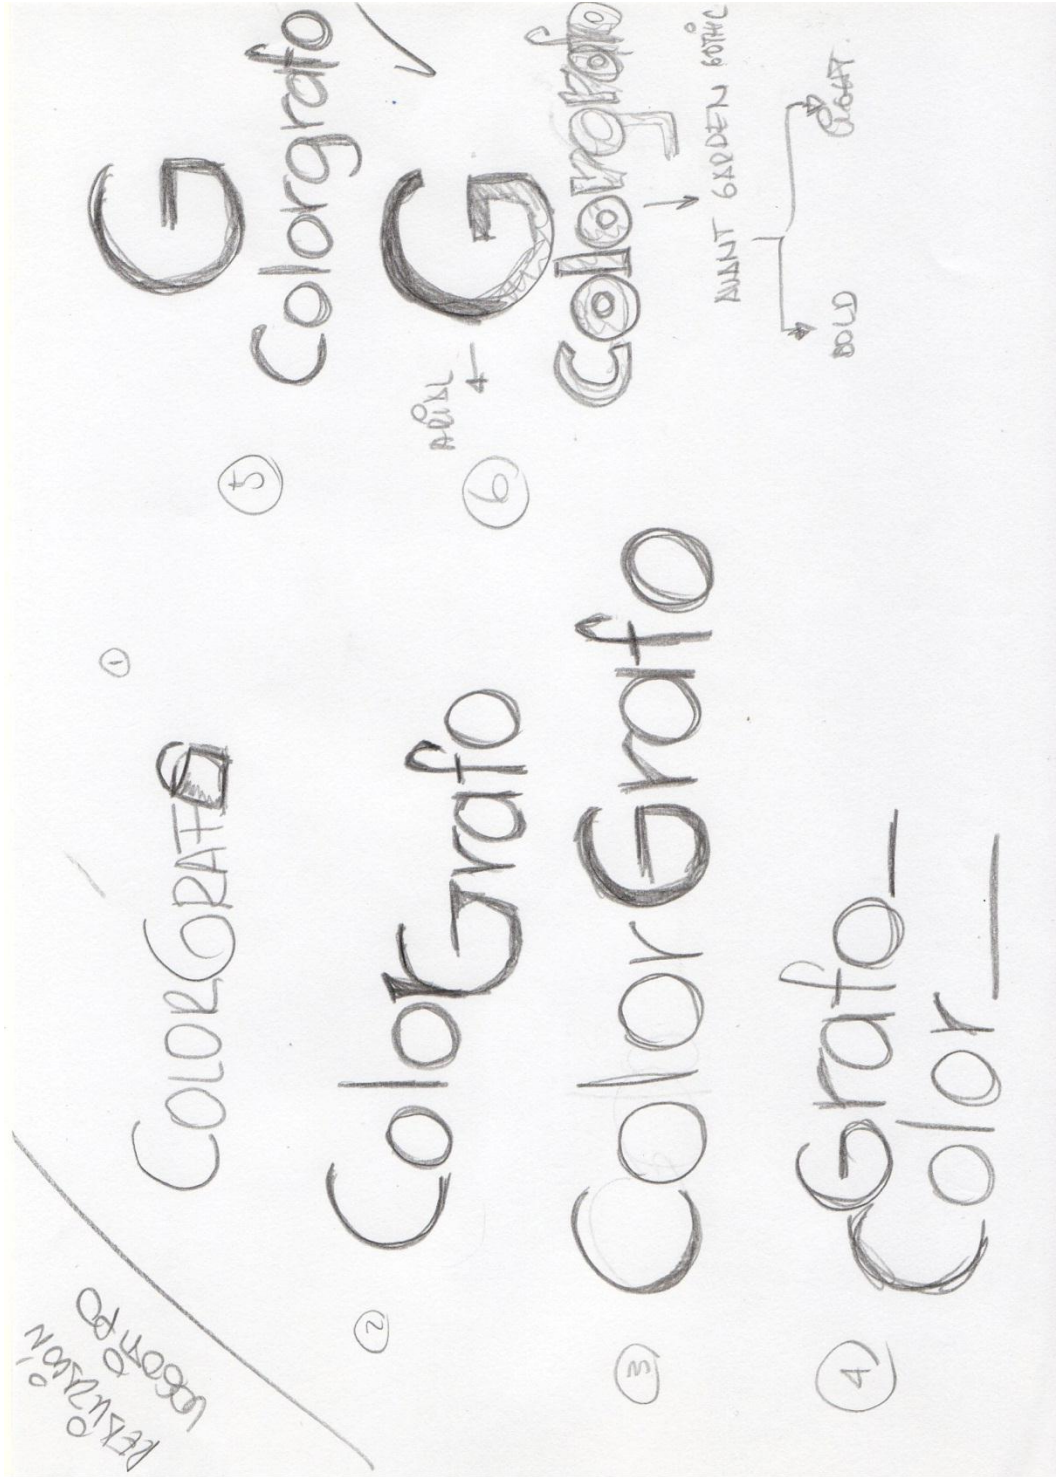 LOGOTIPO
①
COLORGRAFO
②
ColorGrafo
③
ColorGrafo
④
Grafo_
Color_
⑤
G
Colorgrafo
⑥
ARIAL
G
Colorgrafo
AVANT GARDEN GOTHIC
BOLD
LIGHT.